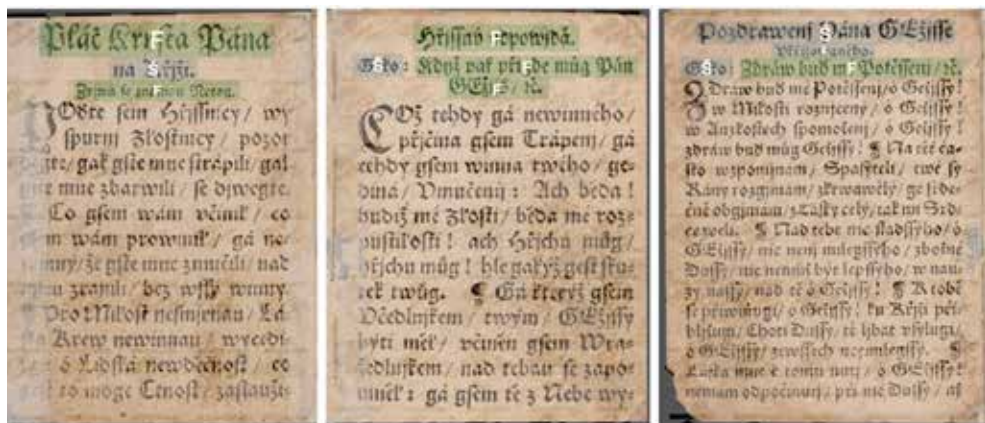 Pláč Krista Pána
na Křjži.
Zpjwá se známau Notau.
POďte sem Hřjssnjcy / wy
spurnj Zlostnjcy / pozor
gak gste mne strápili / gak
mne zbarwili / se djwegte.
Co gsem wám včinil / co
wám prowinil / gá ne-
že gste mne zmučili / nad
zranili / bez wssý winny.
Pro Milost nesmjrnau /
Krew newinnau / wycedil
ó Lidská newděčnost / co
to moge Ctnost / zaslauži-
Hřjssnjk odpowjdá.
Gako: Když pak přigde můg Pán
GEžjss / rč.
COž tehdy gá newinného /
přjčina gsem Trápenj / gá
tehdy gsem winna twého / ge-
diná / Vmučenj: Ach běda!
budiž mé Zlosti / běda mé roz-
pustilosti! ach Hřjchu můg /
hřjchu můg! hle gakýž gest sku-
tek twůg. ¶ Gá kterýž gsem
Včedlnjkem / twým / GEžjssy
býti měl / včiněn gsem Wra-
žedlnjkem / nad tebau se zapo-
mněl: gá gsem tě z Nebe wy-
Pozdrawenj Pána GEžjsse
Vkřižowaného.
Gako: Zdráw buď mé Potěssenj / rč.
ZDráw buď mé Potěssenj / ó Gežjssy!
w Milosti roznjcený / ó Gežjssy!
w Auzkostech spomoženj / ó Gežjssy!
zdráw buď můg Gežjssy! ¶ Na tě ča-
sto wzpomjnám / Spasyteli / twé sý
Rány rozgjmám / zkrwawělý / ge srde-
čně obgjmám / z Lásky celý / tak mi Srd-
ce welj. ¶ Nad tebe nic sladssýho / ó
GEžjssy / nic nenj milegssýho / zbožné
Dussy / nic nemůž být lepssýho / w nau-
zy nassý / nad tě ó Gežjssy! ¶ K tobě
se přiwinugi / ó Gežjssy! ku Křjži při-
bližugi / Choti Dussy / tě ljbat vsylugi /
ó GEžjssy / ze wssech neymilegssý. ¶
Láska mne k tomu nutj / ó GEžjssy!
nemám odpočinutj / při mé Dussy / až